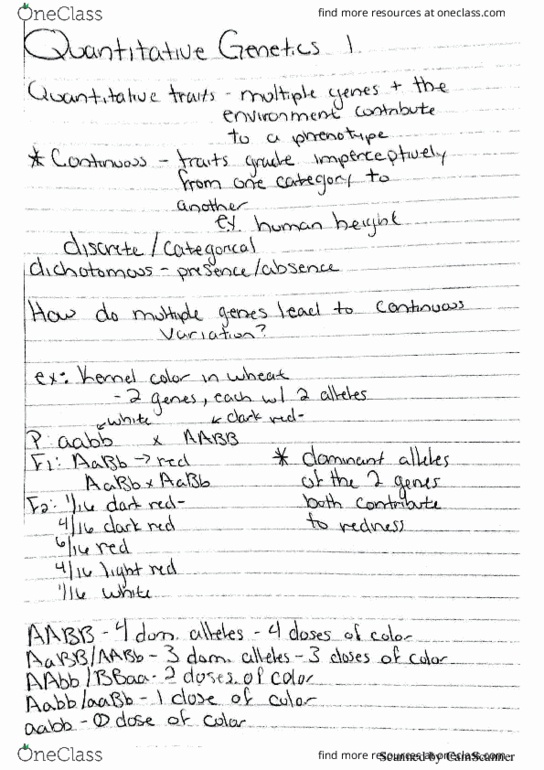 OneClass
find more resources at oneclass.com
Quantitative Genetics 1.
Quantitative traits - multiple genes + the
environment contribute
to a phenotype
* Continuous - traits grade imperceptively
from one category to
another
ex. human height
discrete / categorical
dichotomous - presence/absence
How do multiple genes lead to continuous
variation?
ex: Kernel color in wheat
- 2 genes, each w/ 2 alleles
white dark red-
P: aabb x AABB
F1: AaBb → red * dominant alleles
AaBb x AaBb of the 2 genes
F2: 1/16 dark red- both contribute
4/16 dark red to redness
6/16 red
4/16 light red
1/16 white
AABB - 4 dom. alleles - 4 doses of color
AaBB/AABb - 3 dom. alleles - 3 doses of color
AAbb / BBaa - 2 doses of color
Aabb/aaBb - 1 dose of color
aabb - 0 dose of color
OneClass
find more resources at oneclass.com
Scanned by CamScanner